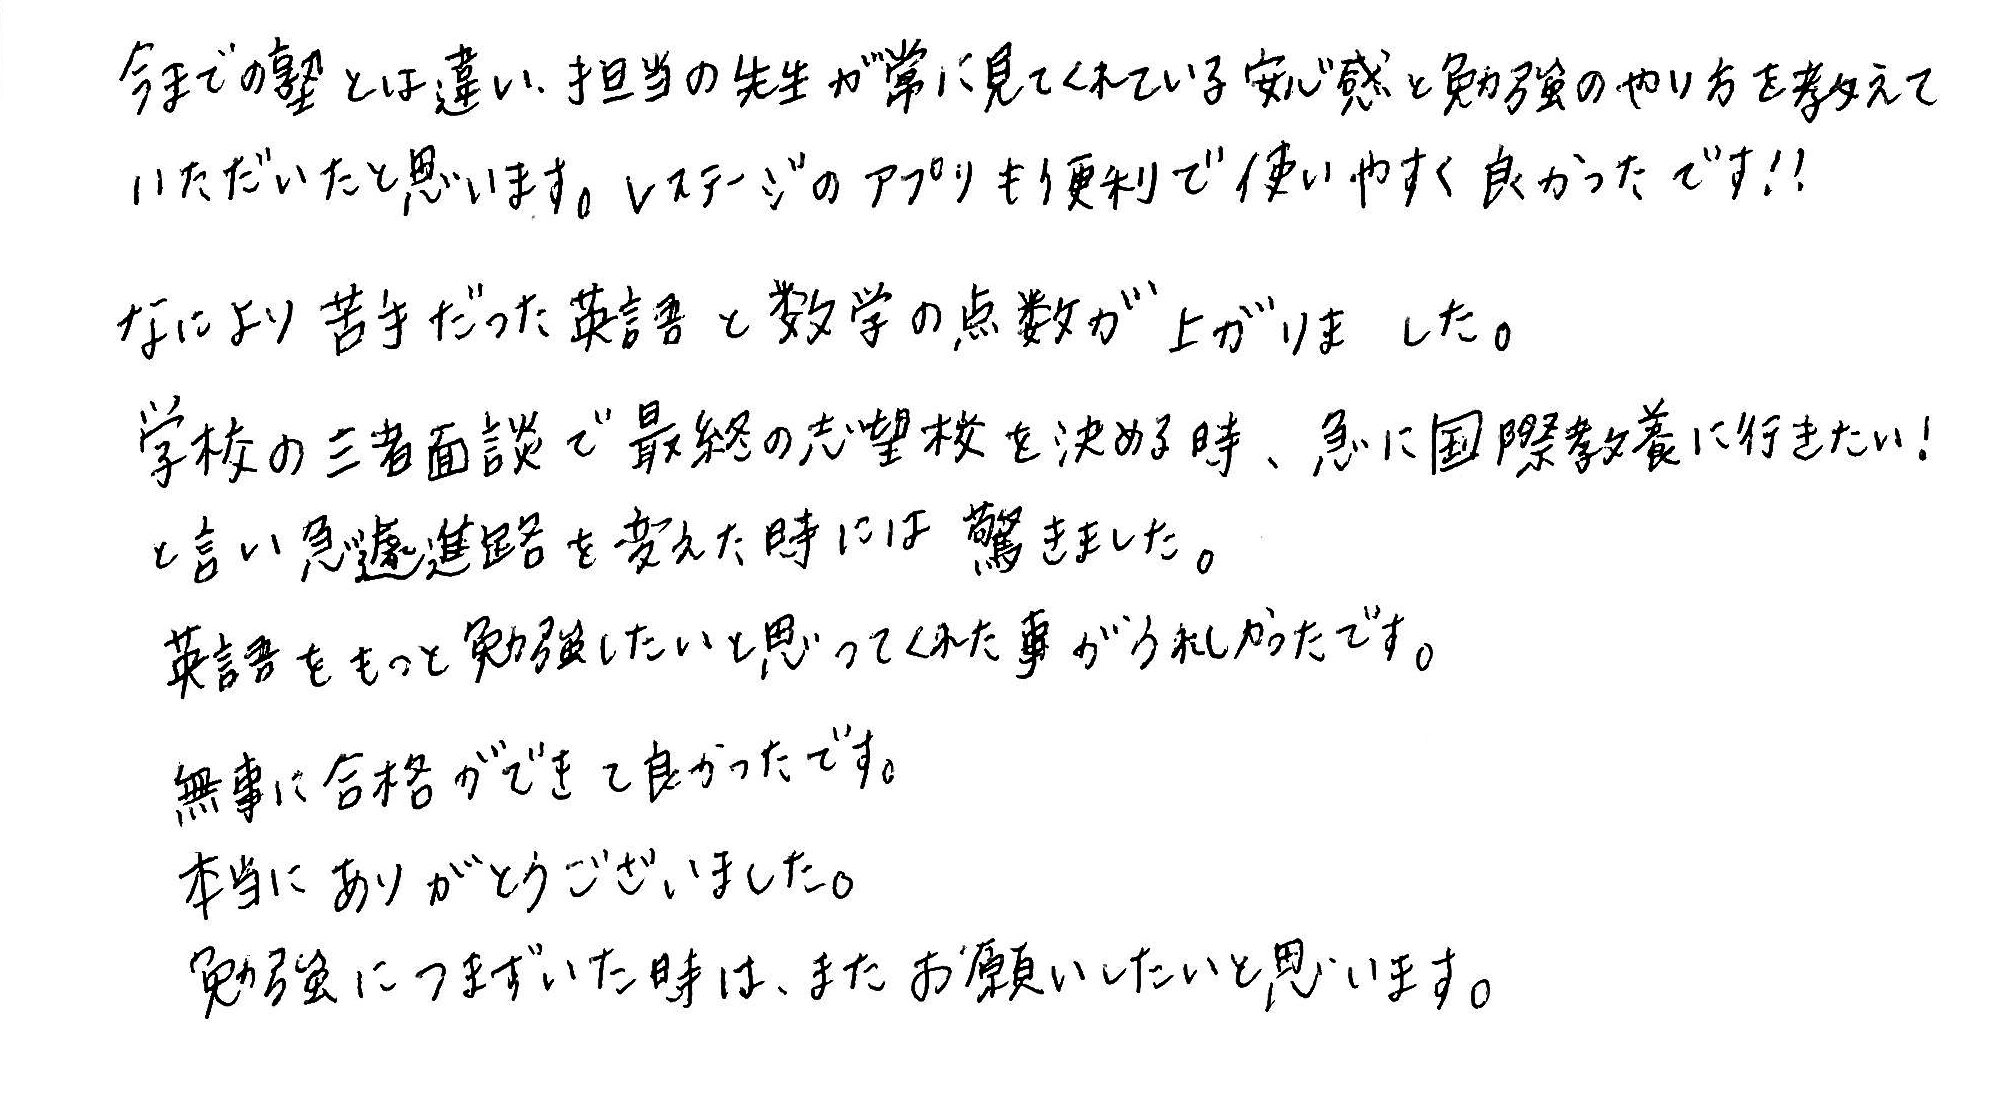 今までの塾とは違い、担当の先生が常に見てくれている安心感と勉強のやり方を教えて
いただいたと思います。レステージのアプリも便利で使いやすく良かったです!!
なにより苦手だった英語と数学の点数が上がりました。
学校の三者面談で最終の志望校を決める時、急に国際教養に行きたい!
と言い急遽進路を変えた時には驚きました。
英語をもっと勉強したいと思ってくれた事がうれしかったです。
無事に合格ができて良かったです。
本当にありがとうございました。
勉強につまずいた時は、またお願いしたいと思います。